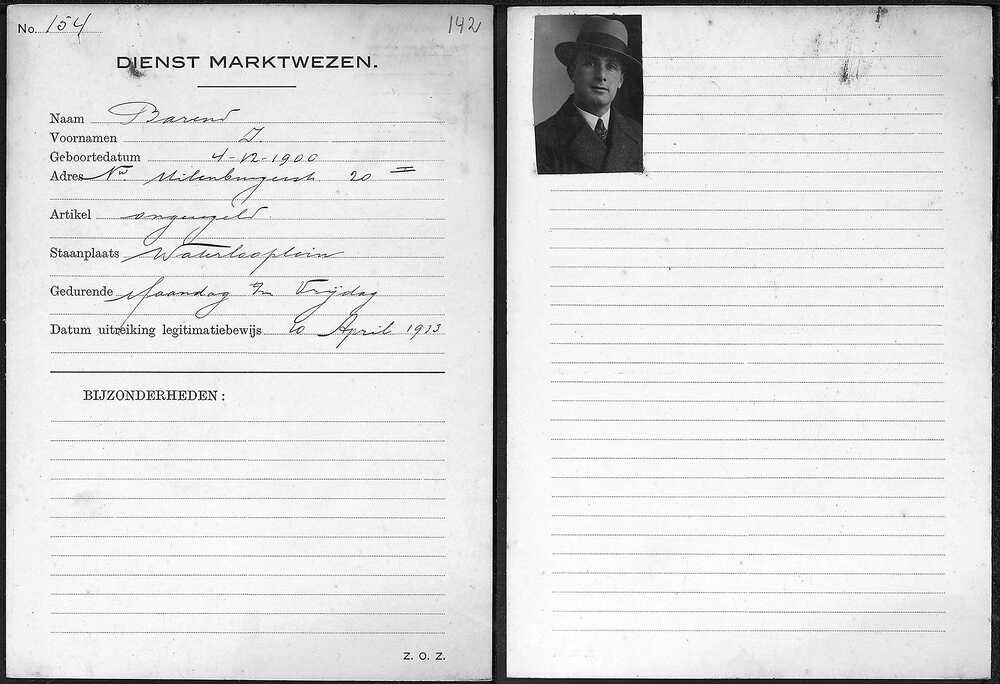 No. 154
142
DIENST MARKTWEZEN.
Naam Barend
Voornamen J.
Geboortedatum 4-12-1900
Adres Nw. Uilenburgerstr. 20 II
Artikel ongeregeld
Staanplaats Waterlooplein
Gedurende Maandag t/m Vrijdag
Datum uitreiking legitimatiebewijs 10 April 1933
BIJZONDERHEDEN:
Z. O. Z.